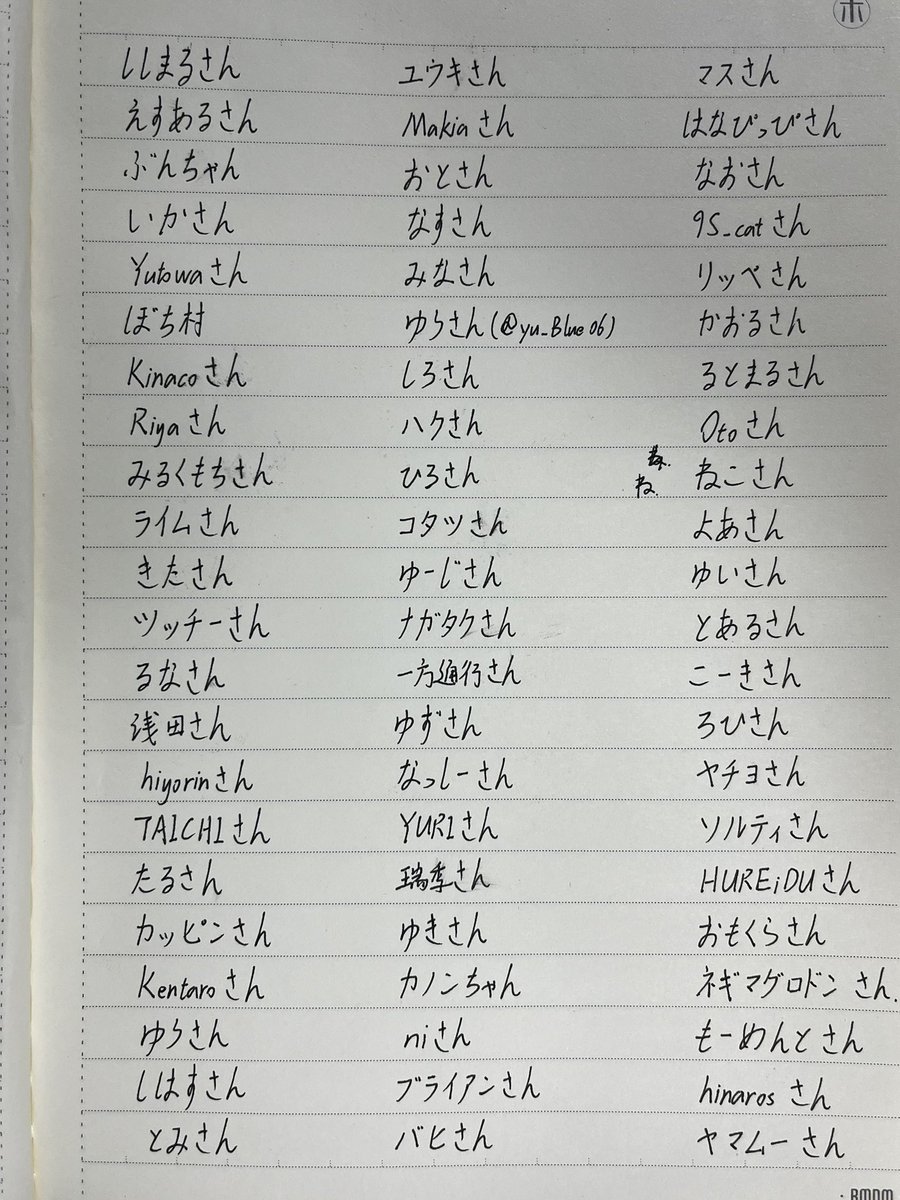 ししまるさん
えすあるさん
ぶんちゃん
いかさん
Yutowaさん
ぼち村
Kinacoさん
Riyaさん
みるくもちさん
ライムさん
きたさん
ツッチーさん
るなさん
浅田さん
hiyorinさん
TAICHIさん
たるさん
カッピンさん
Kentaroさん
ゆうさん
しはすさん
とみさん
ユウキさん
Makiaさん
おとさん
なすさん
みなさん
ゆうさん(@yu_Blue06)
しろさん
ハクさん
ひろさん
コタツさん
ゆーじさん
ナガタクさん
一方通行さん
ゆずさん
なっしーさん
YURIさん
瑞季さん
ゆきさん
カノンちゃん
niさん
ブライアンさん
バヒさん
ホ
マスさん
はなぴっぴさん
なおさん
9S_catさん
リッペさん
かおるさん
るとまるさん
Otoさん
ね
ねこさん
よあさん
ゆいさん
とあるさん
こーきさん
ろひさん
ヤチヨさん
ソルティさん
HUREiDUさん
おもくらさん
ネギマグロドンさん.
もーめんとさん
hinarosさん
ヤマムーさん